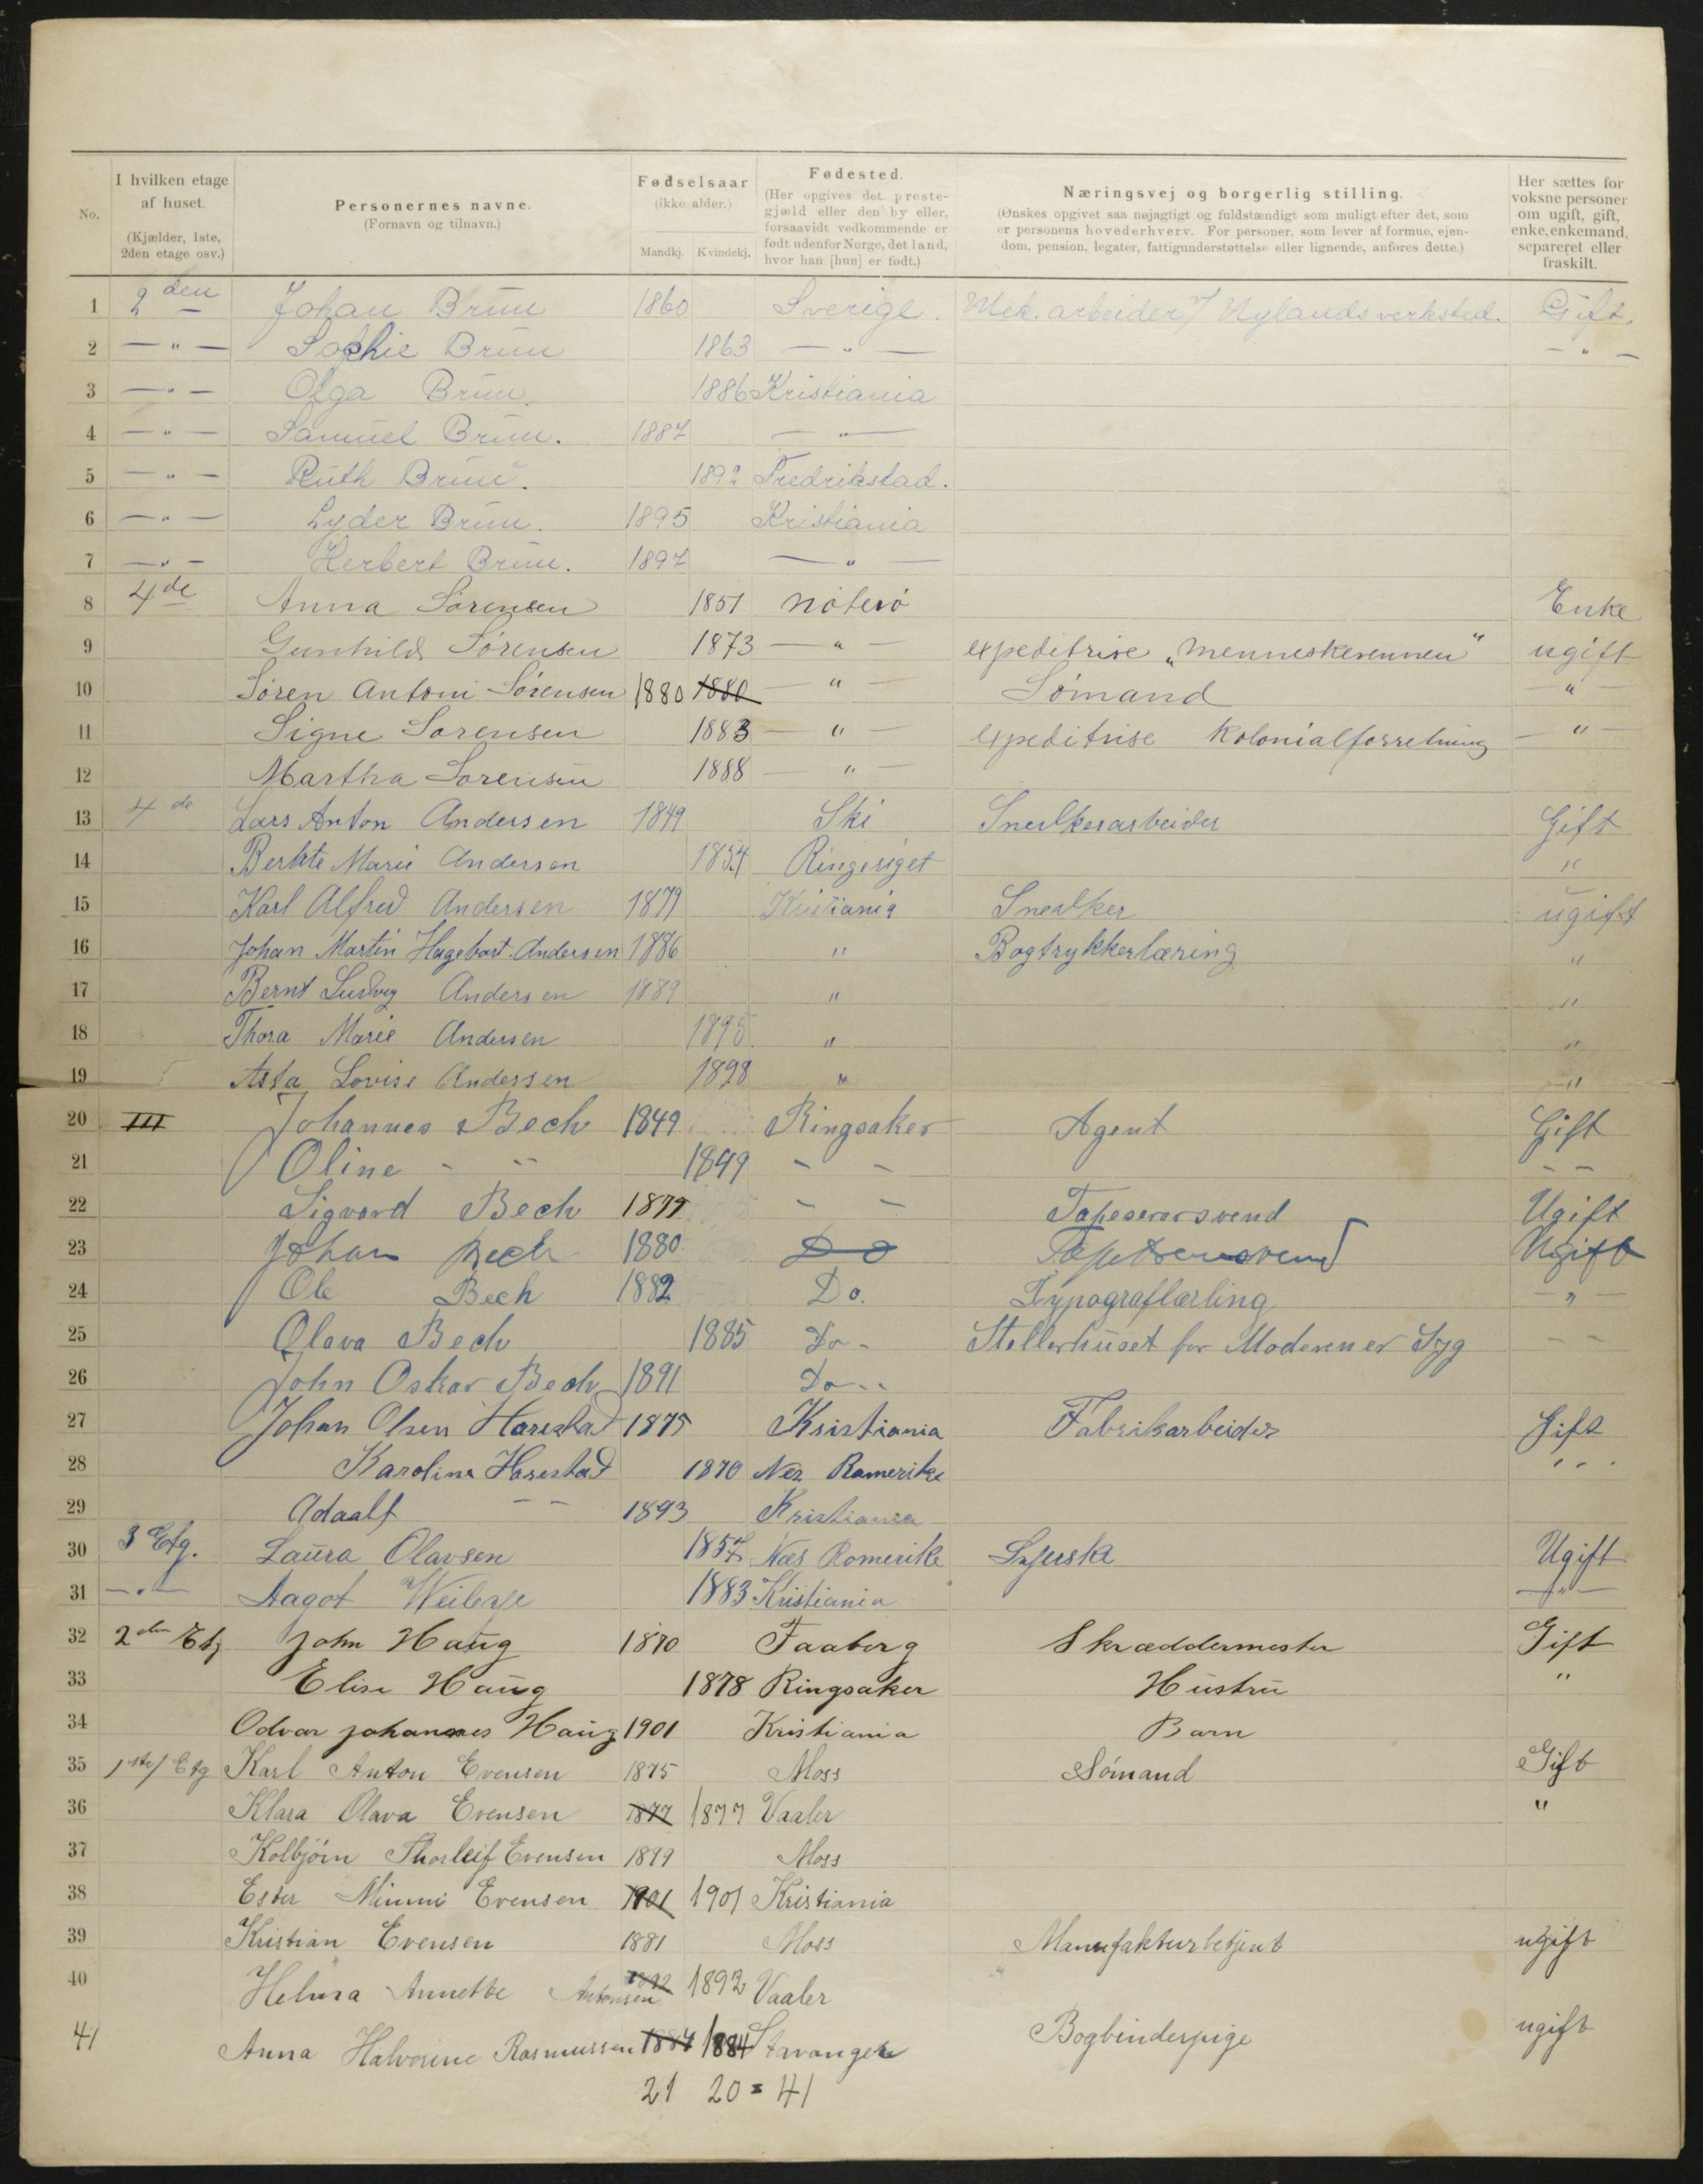 No.
I hvilken etage af huset. (Kjælder, 1ste, 2den etage osv.)
Personernes navne. (Fornavn og tilnavn.)
Fødselsaar (ikke alder.) Mandkj. Kvindekj.
Fødested. (Her opgives det prestegjæld eller den by eller, forsaavidt vedkommende er født udenfor Norge, det land, hvor han [hun] er født.)
Næringsvej og borgerlig stilling. (Ønskes opgivet saa nøjagtigt og fuldstændigt som muligt efter det, som er personens hovederhverv. For personer, som lever af formue, ejendom, pension, legater, fattigunderstøttelse eller lignende, anføres dette.)
Her sættes for voksne personer om ugift, gift, enke, enkemand, separeret eller fraskilt.
1 2den Johan Brun 1860 Sverige. Mek. arbeider / Nylands verksted. Gift
2 — " — Sophie Brun 1863 — " — — " —
3 — " — Olga Brun. 1886 Kristiania
4 — " — Samuel Brun. 1887 — " —
5 — " — Ruth Brun. 1892 Fredrikstad.
6 — " — Lyder Brun. 1895 Kristiania
7 — " — Herbert Brun. 1897 — " —
8 4de Anna Sørensen 1851 Nøterø Enke
9 Gunhild Sørensen 1873 — " — expeditrise „Menneskevennen" ugift
10 Søren Antoni Sørensen 1880 1880 — " — Sømand — " —
11 Signe Sørensen 1883 — " — expeditrise Kolonialforretning — " —
12 Martha Sørensen 1888 — " —
13 4de Lars Anton Andersen 1849 Ski Snedkerarbeider Gift
14 Berhte Marie Andersen 1854 Ringeriget "
15 Karl Alfred Andersen 1879 Kristiania Snedker ugift
16 Johan Martin Hagebart Andersen 1886 " Bogtrykkerlæring "
17 Bernt Ludvig Andersen 1889 " "
18 Thora Marie Andersen 1895 " "
19 Asta Lovise Andersen 1898 " "
20 III Johannes Bech 1849 Ringsaker Agent Gift
21 Oline - -- 1849 - - - -
22 Sigvard Bech 1879 - - Tapeserersvend Ugift
23 Johan Bech 1880 Do Ugift
24 Ole Bech 1882 Do. Typograflærling — " —
25 Olava Bech 1885 Do - Moderener Syg - -
26 John Oskar Bech 1891 Do --
27 Johan Olsen Harestad 1875 Kristiania Fabrikarbeider Gift
28 Karoline Harestad 1870 Nes Romerike " " "
29 Adaalf - - 1893 Kristiania
30 3 Etg. Laura Olavsen 1857 Næs Romerike Syerske Ugift
31 — " — Aagot 1883 Kristiania — " —
32 2den Etg John Haug 1870 Faaberg Skræddermester Gift
33 Elise Haug 1878 Ringsaker Hustru "
34 Odvar Johannes Haug 1901 Kristiania Barn
35 1ste/ Etg Karl Anton Evensen 1875 Moss Sømand Gift
36 Klara Olava Evensen 1877 1877 Vaaler "
37 Kolbjørn Thorleif Evensen 1899 Moss
38 Ester Minni Evensen 1901 1901 Kristiania
39 Kristian Evensen 1881 Moss Manufakturbetjent ugift
40 Helma Annette Antonsen 1892 1892 Vaaler
41 Anna Halvorine Rasmussen 1884 1884 Stavanger Bogbinderpige ugift
21 20 = 41